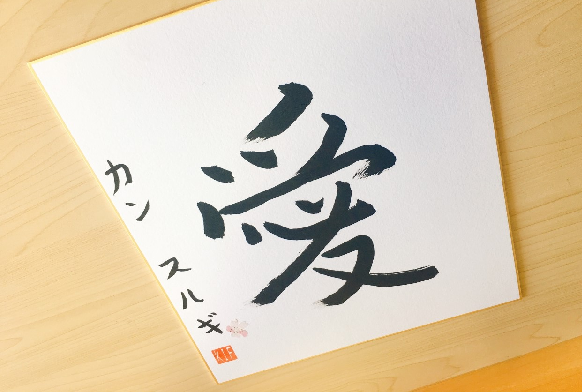 愛
カン スルギ